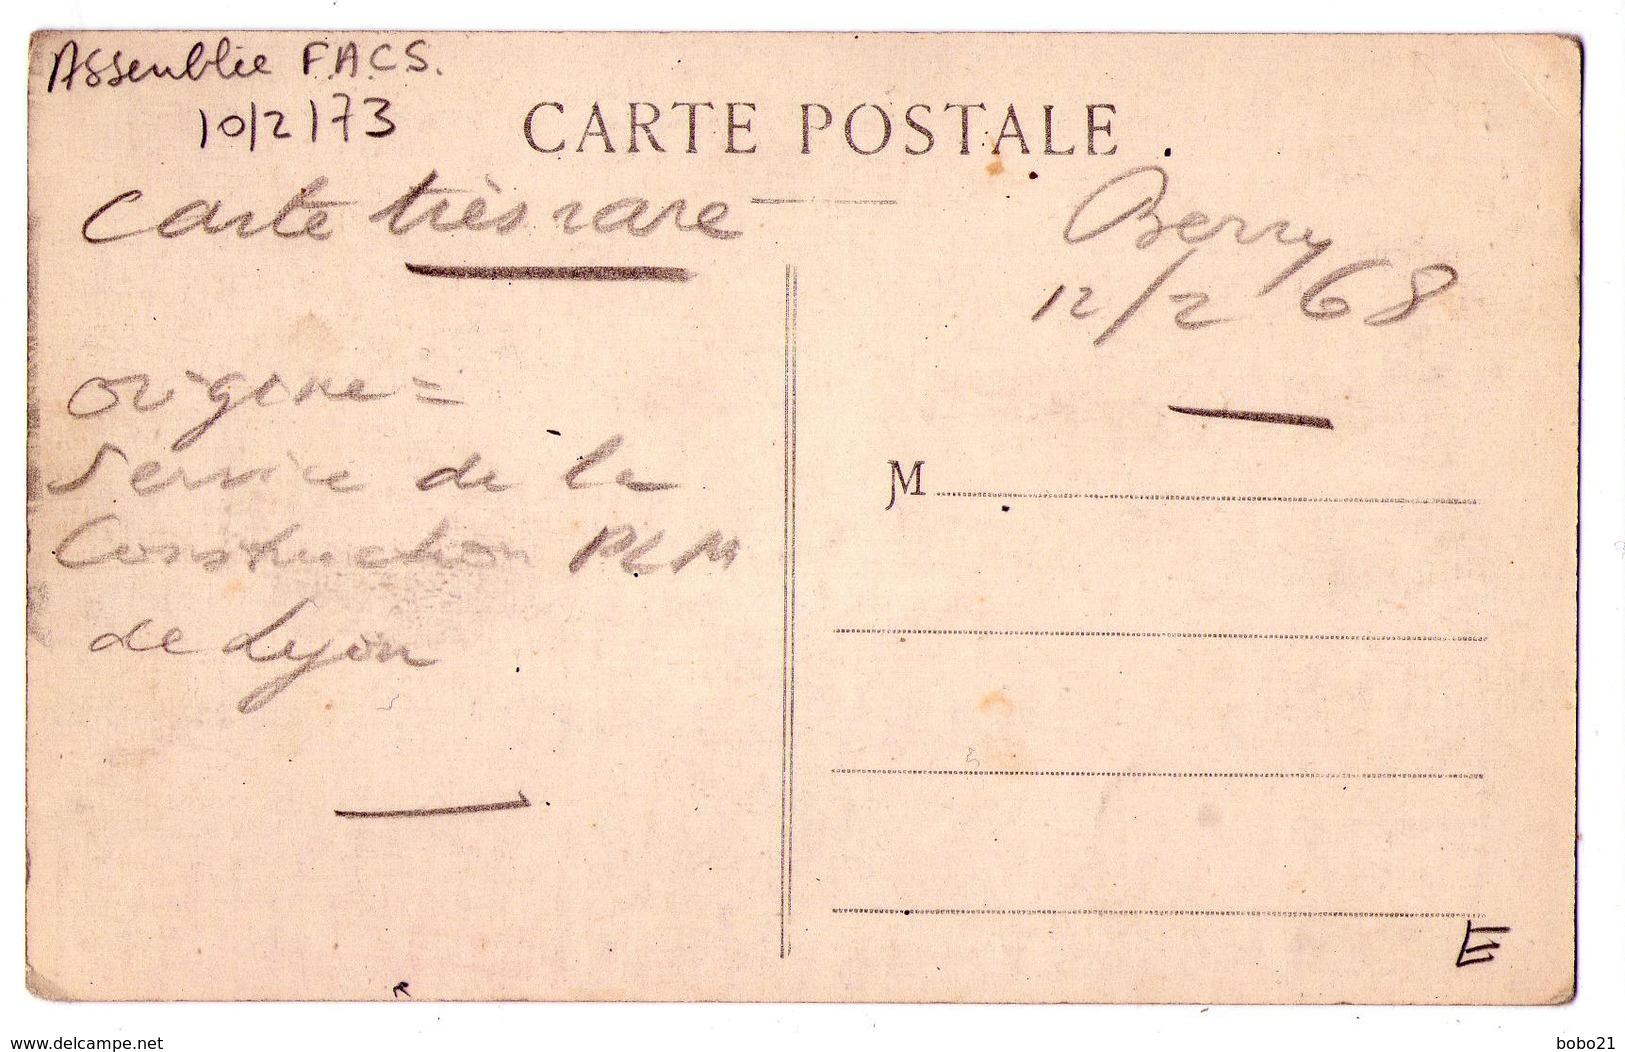 Assemblée F.A.C.S.
10/2/73
CARTE POSTALE
Carte très rare
Berry
12/2 68
origine =
Service de la
Construction PLM
de Lyon
M
E
www.delcampe.net
bobo21